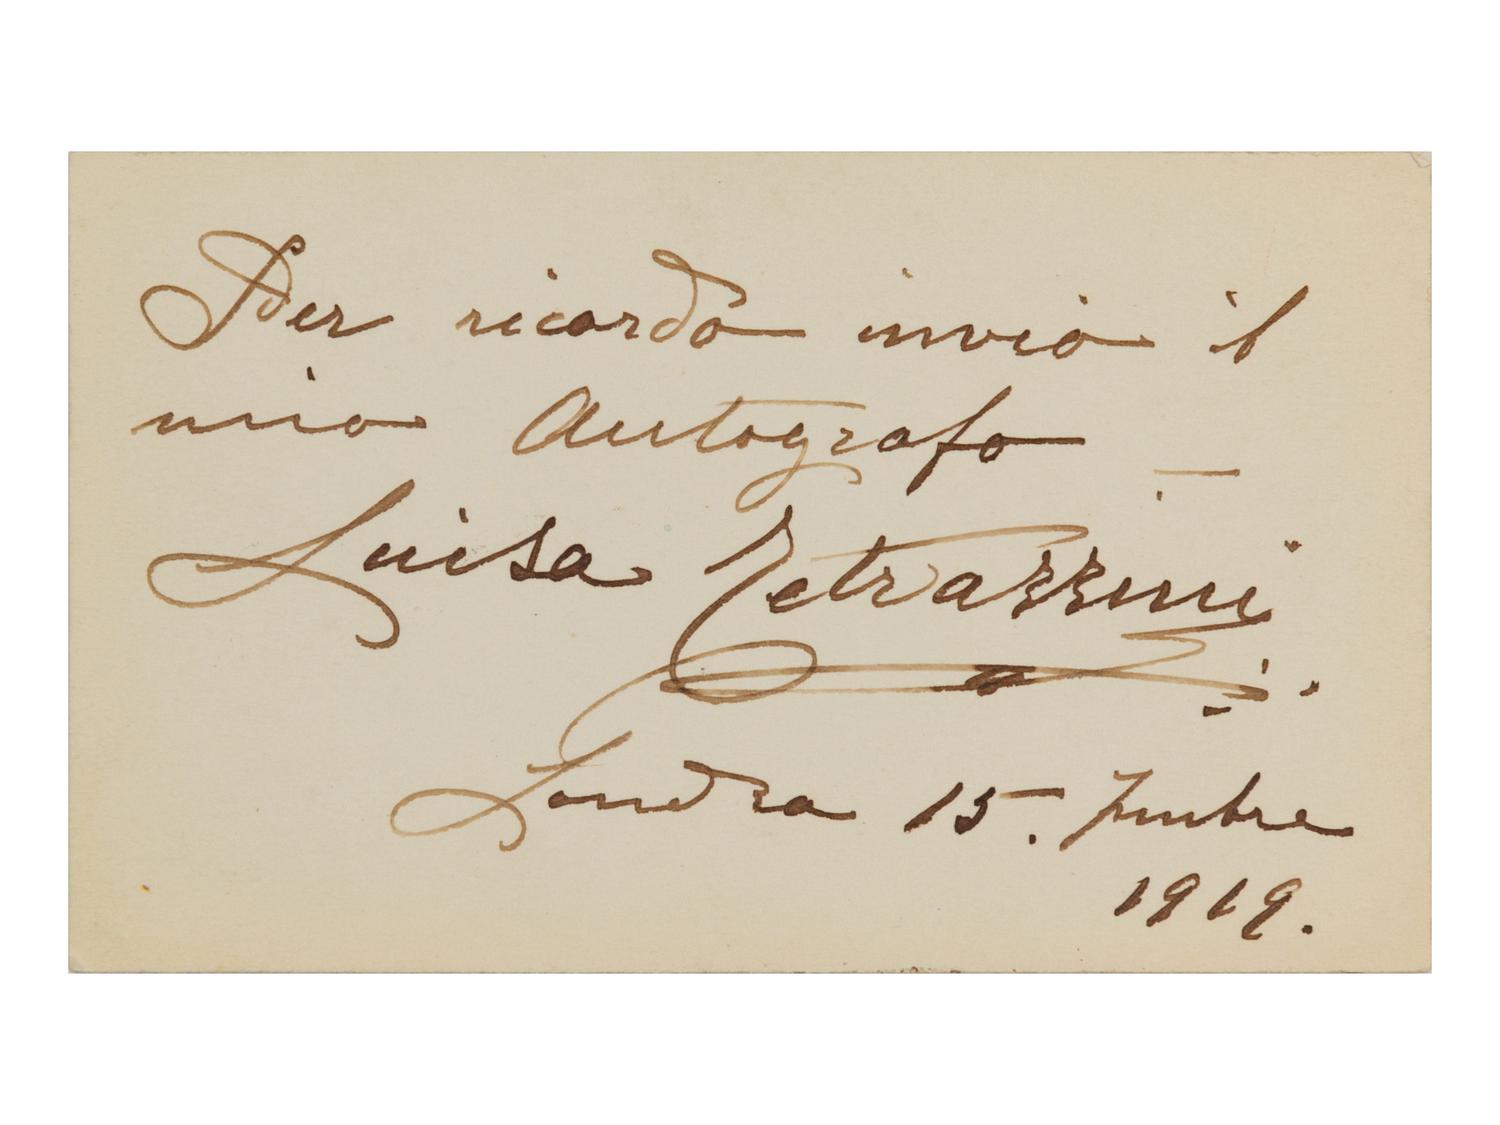 Per ricordo invio il
mio Autografo —
Luisa Tetrazzini
Londra 15.
1919.